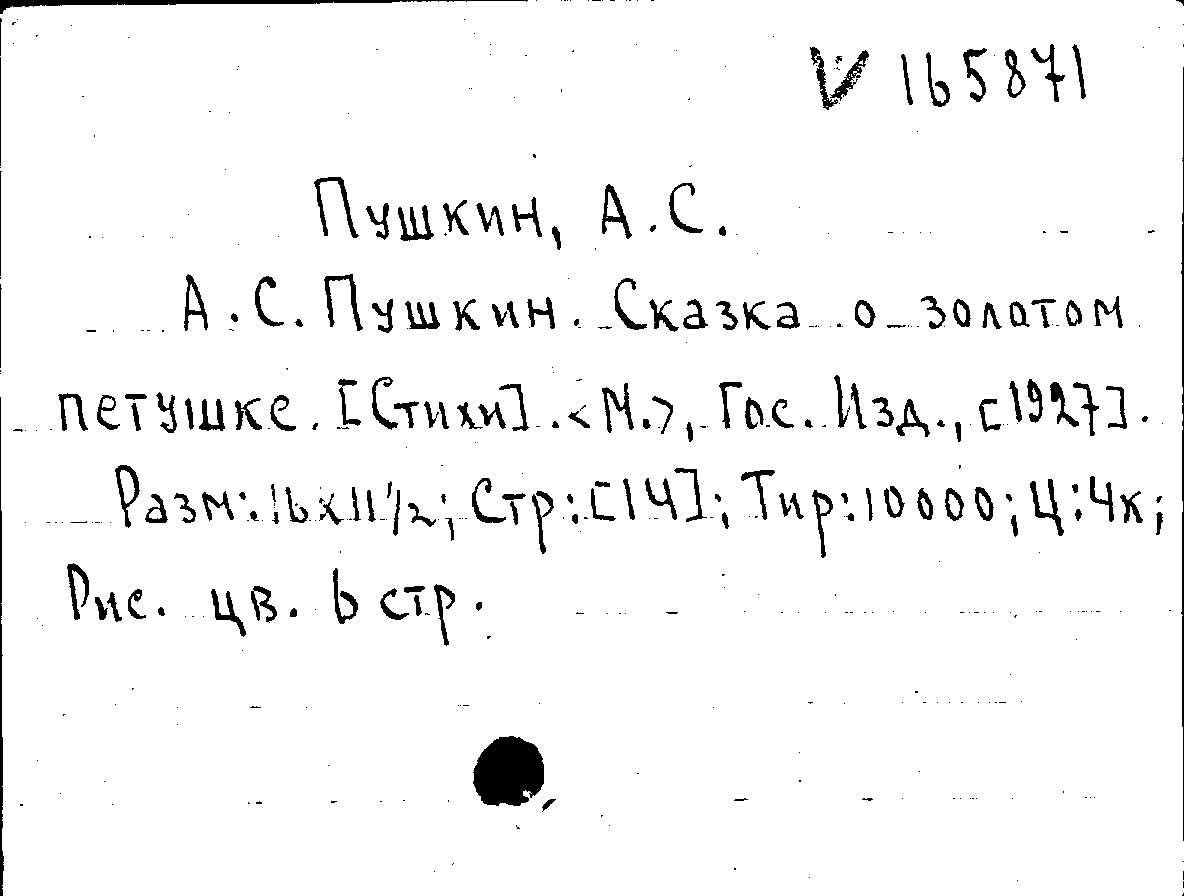 V 165871
Пушкин, А.С.
А.С. Пушкин. Сказка о золотом
петушке. [Стихи]. <М.>, Гос. Изд., [1927].
Разм: 16х11 1/2; Стр: [14]; Тир: 10000; Ц: 4к;
Рис. цв. 6 стр.